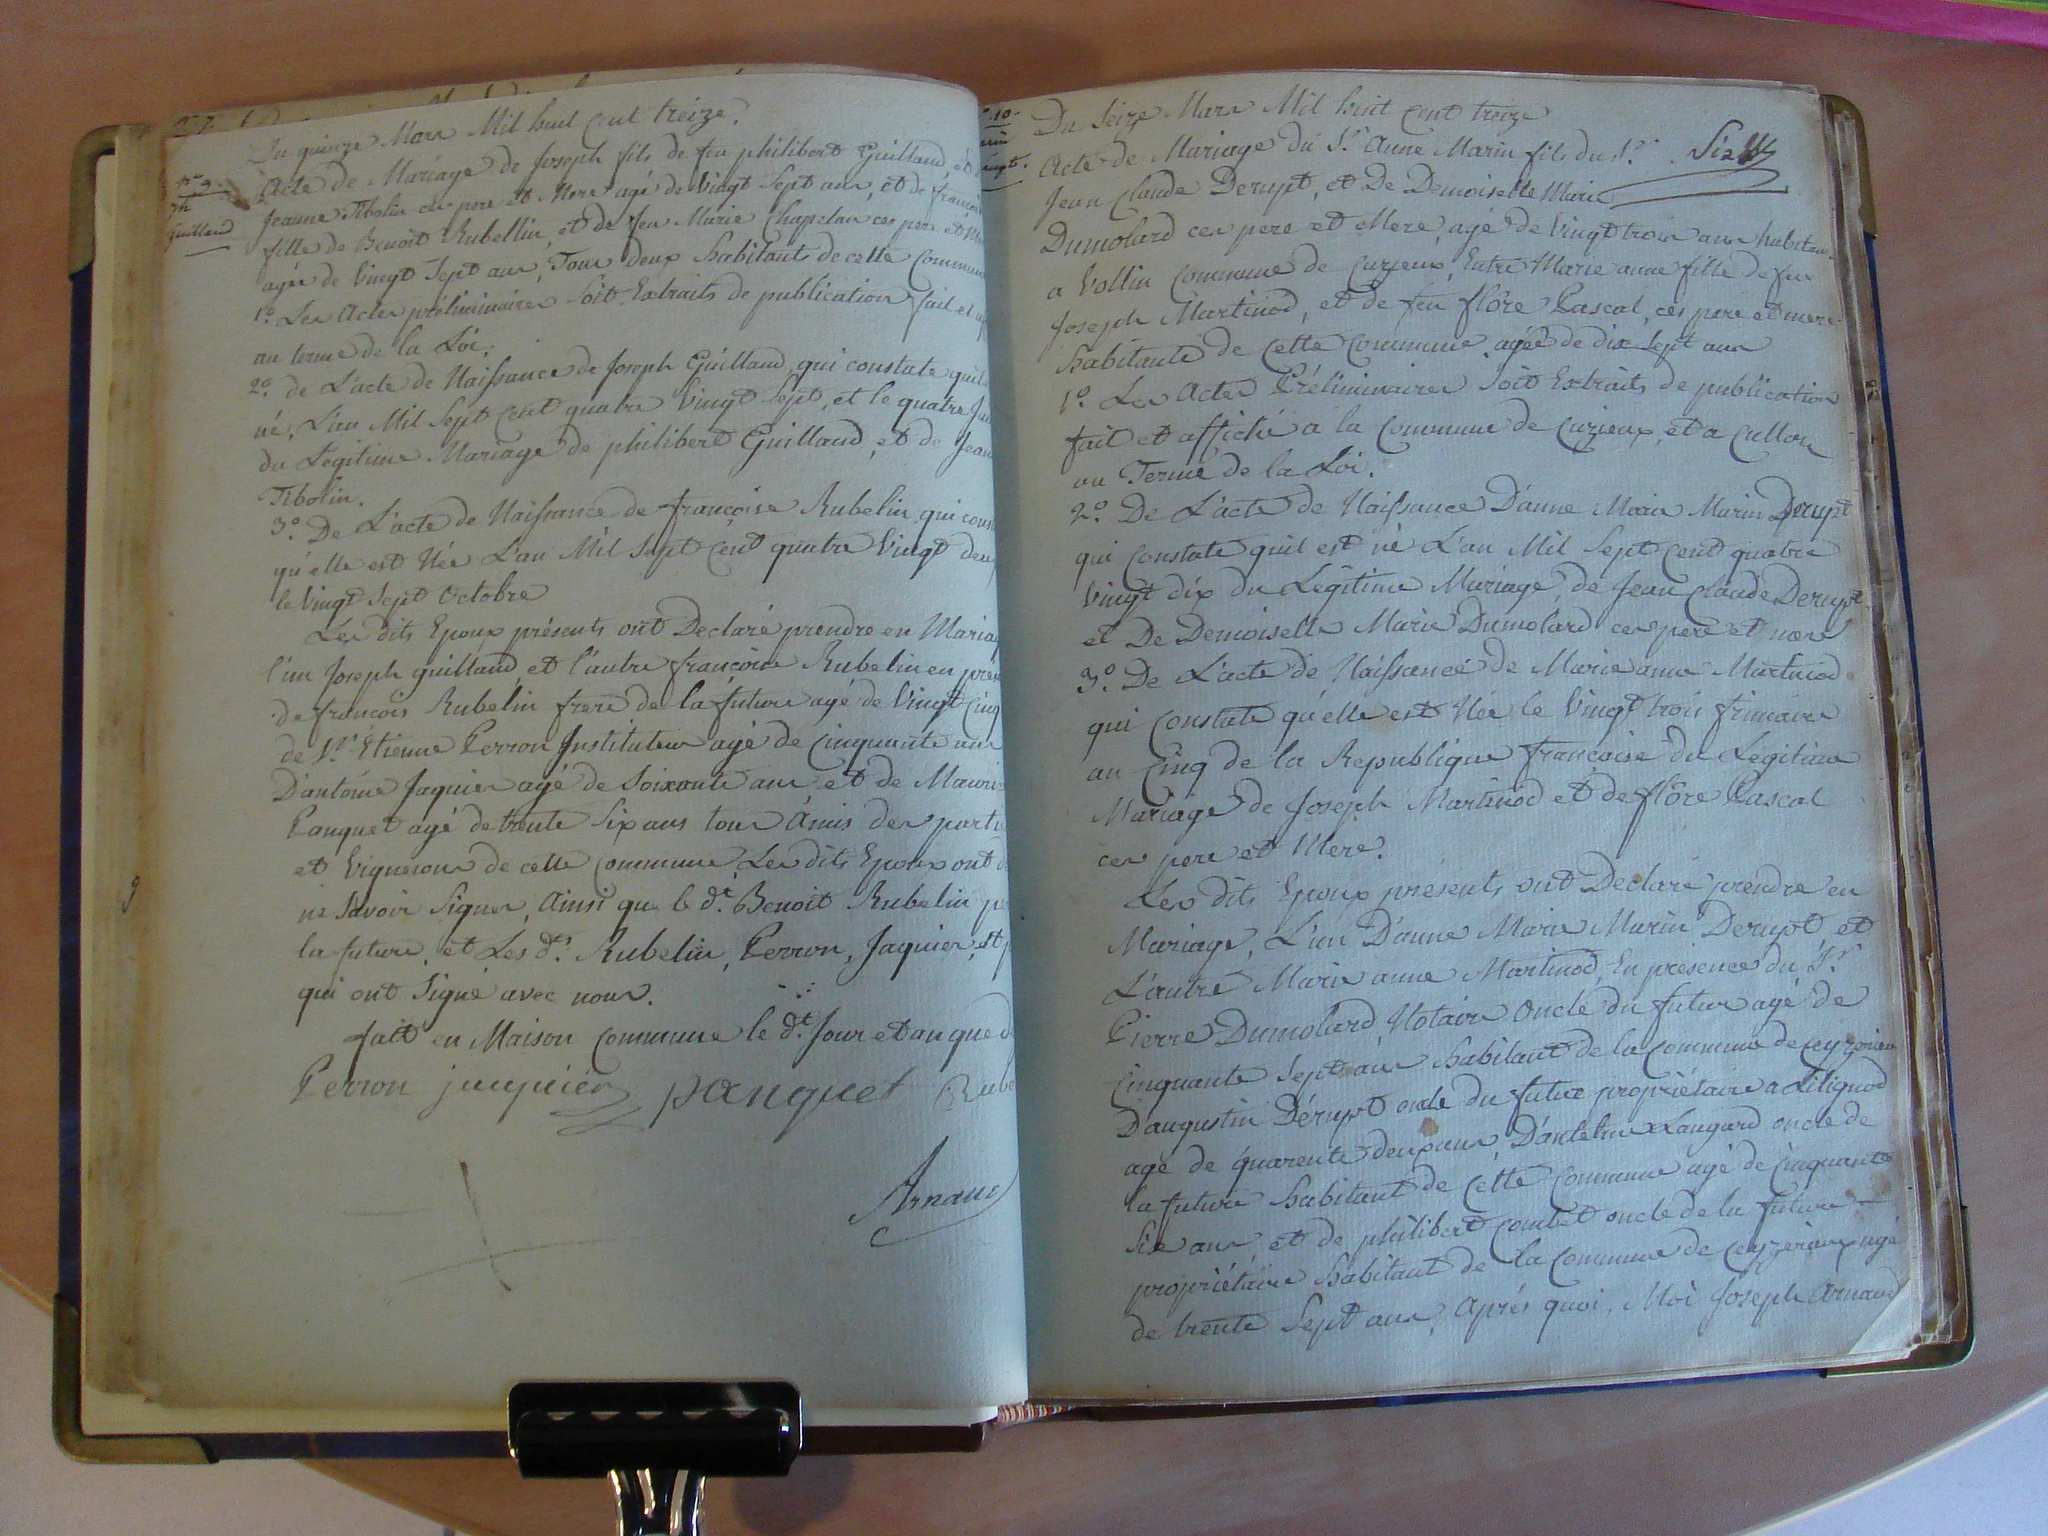 Du quinze Mars Mil huit Cent treize.
n.º 9.
Guilland
Acte de Mariage de Joseph fils de feu philibert Guilland, et d
Jeanne Tibolin ces pere et Mere agé de Vingt Sept ans, et de françoi
fille de Benoit Rubellin, et de feu Marie Chapelan ces pere et Me
agée de Vingt Sept ans, Tous deux habitants de cette Commun
1.º Les Actes préliminaires Soit Extraits de publication fait et aff
au terme de la Loi.
2.º de L'acte de Naissance de Joseph Guilland, qui constate quil
né, L'an Mil Sept Cent quatre Vingt Sept, et le quatre Jui
du Légitime Mariage de philibert Guilland, et de Jean
Tibolin.
3.º De L'acte de Naissance de françoise Rubelin, qui cons
qu'elle est Née L'an Mil Sept Cent quatre Vingt deux
le Vingt Sept Octobre
Les dits Epoux présents ont Declaré prendre en Mariag
l'un Joseph guilland, et l'autre françoise Rubelin en prés
de francois Rubelin frere de la future agé de Vingt Cinq
de S.r Etienne Perron Instituteur agé de Cinquante ans
D'antoine Jaquier agé de Soixante ans et de Mauri
Panquet agé de trente Six ans tous Amis des parti
et Vignerons de cette Commune, Les dits Epoux ont d
ne Savoir Signer, Ainsi que le d.t Benoit Rubelin pe
la future, et Les d.ts Rubelin, Perron, Jaquier, et p
qui ont Signé avec nous.
fait en Maison Commune le d.t Jour et an que d
Perron jaquier panquet Rube
Arnaud
9
10.
Du Seize Mars Mil huit Cent treize
Acte de Mariage du S.r Anne Marin fils du S.r
Jean Claude Derupt, et De Demoiselle Marie
Dumolard ces pere et Mere, agé de Vingt trois ans habitan
a Vollin Commune de Curzeux, Entre Marie anne fille de feu
Joseph Martinod, et de feu flôre Pascal, ces pere et mere
habitante de cette Commune, agée de dix Sept ans
1.º Les Actes Préliminaires Soit Extraits de publication
fait et affiché a la Commune de Curzieux, et a Culloz
au Terme de la Loi.
2.º De L'acte de Naissance D'anne Marie Marin Derupt
qui Constate quil est né L'an Mil Sept Cent quatre
Vingt dix du Légitime Mariage, de Jean Claude Derupt
et De Demoiselle Marie Dumolard ces pere et mere
3.º De L'acte de Naissance de Marie anne Martinod
qui Constate qu'elle est Née le Vingt trois frimaire
an Cinq de la Republique françoise du Legitime
Mariage de Joseph Martinod et de flôre Pascal
ces pere et Mere.
Les dits Epoux présents ont Declaré prendre en
Mariage, L'un D'anne Marie Marin Derupt et
L'autre Marie anne Martinod, En présence du S.r
Pierre Dumolard Notaire Oncle du futur agé de
Cinquante Sept ans habitant de la Commune de Ceyzerieu
D'augustin Dérupt oncle du futur propriétaire a Lilignod
agé de quarente deux ans, D'antelme Laugard oncle de
la future habitant de cette Commune agé de Cinquante
Six ans, et de philibert Combet oncle de la future
propriétaire habitant de la Commune de Ceyzerieux agé
de trente Sept ans, après quoi, Moi Joseph Arnaud